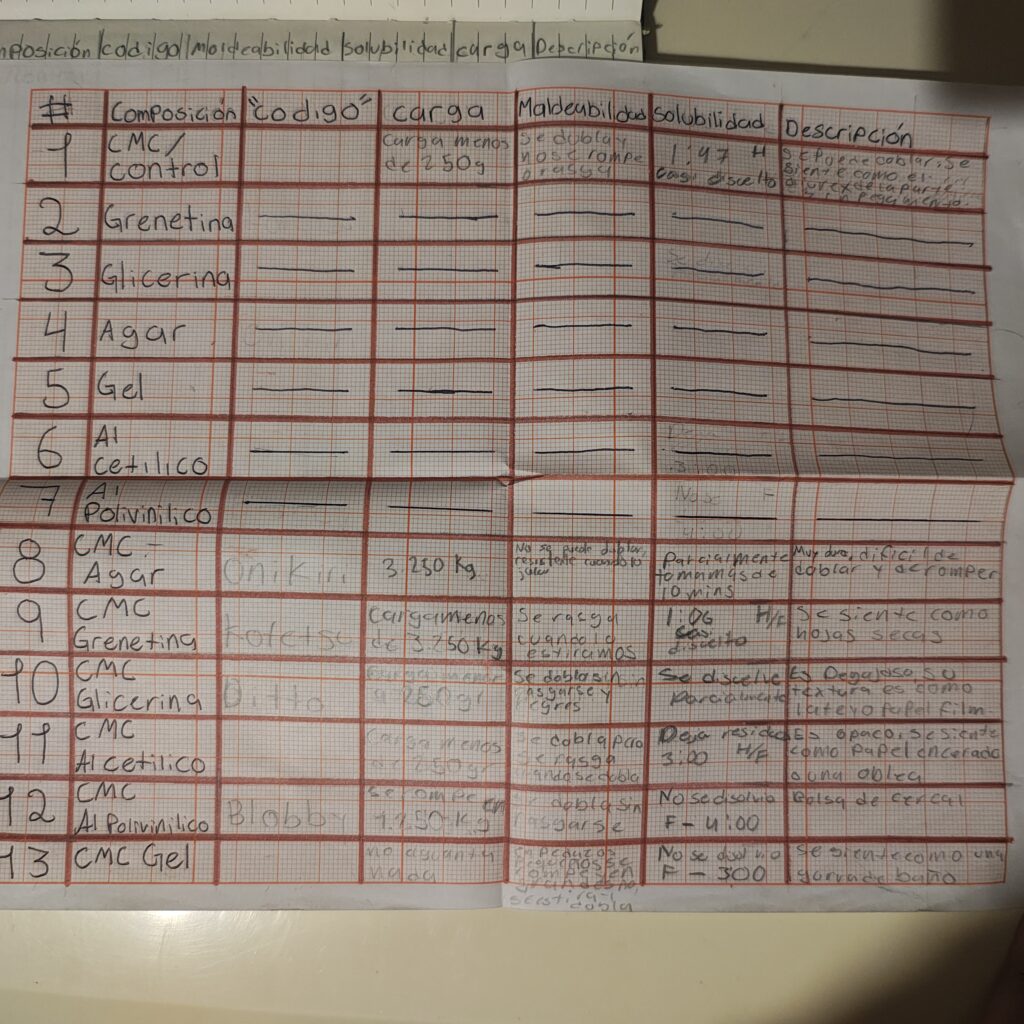 composición | codigo | Moldeabilidad | solubilidad | carga | Descripción
# Composición "Codigo" carga Maldeabilidad solubilidad Descripción
1 CMC/ control
carga menos de 250g
se dobla y no se rompe o rasga
1:47 H
casi disuelto
se puede doblar, se siente como el durex de la parte sin pegamento.
2 Grenetina
3 Glicerina
4 Agar
5 Gel
6 Al cetilico
7 Al Polivinilico
8 CMC - Agar
Onikiri
3.250 Kg
No se puede doblar, resistente cuando lo jalar
Parcialmente toma mas de 10 mins
Muy duro, dificil de doblar y de romper
9 CMC Grenetina
carga menos de 3.250 Kg
Se rasga cuando lo estiramos
1:06 H/F
casi disuelto
se siente como hojas secas
10 CMC Glicerina
Ditto
a 250gr
se dobla sin rasgarse y
Se disuelve parcialmente
Es Pegajoso, su textura es como latex o papel film
11 CMC Al cetilico
Carga menos de 250gr
Se dobla pero se rasga cuando se dobla
Deja residuos
3:00 H/F
Es opaco, se siente como papel encerado o una oblea
12 CMC Al Polivinilico
Blobby
se rompe en 1.250 Kg
Se dobla sin rasgarse
No se disolvio
F - 4:00
Bolsa de cereal
13 CMC Gel
no aguanta nada
En pedazos pequeños se
se estira
dobla
No se disolvio
F - 3:00
se siente como una gorra de baño